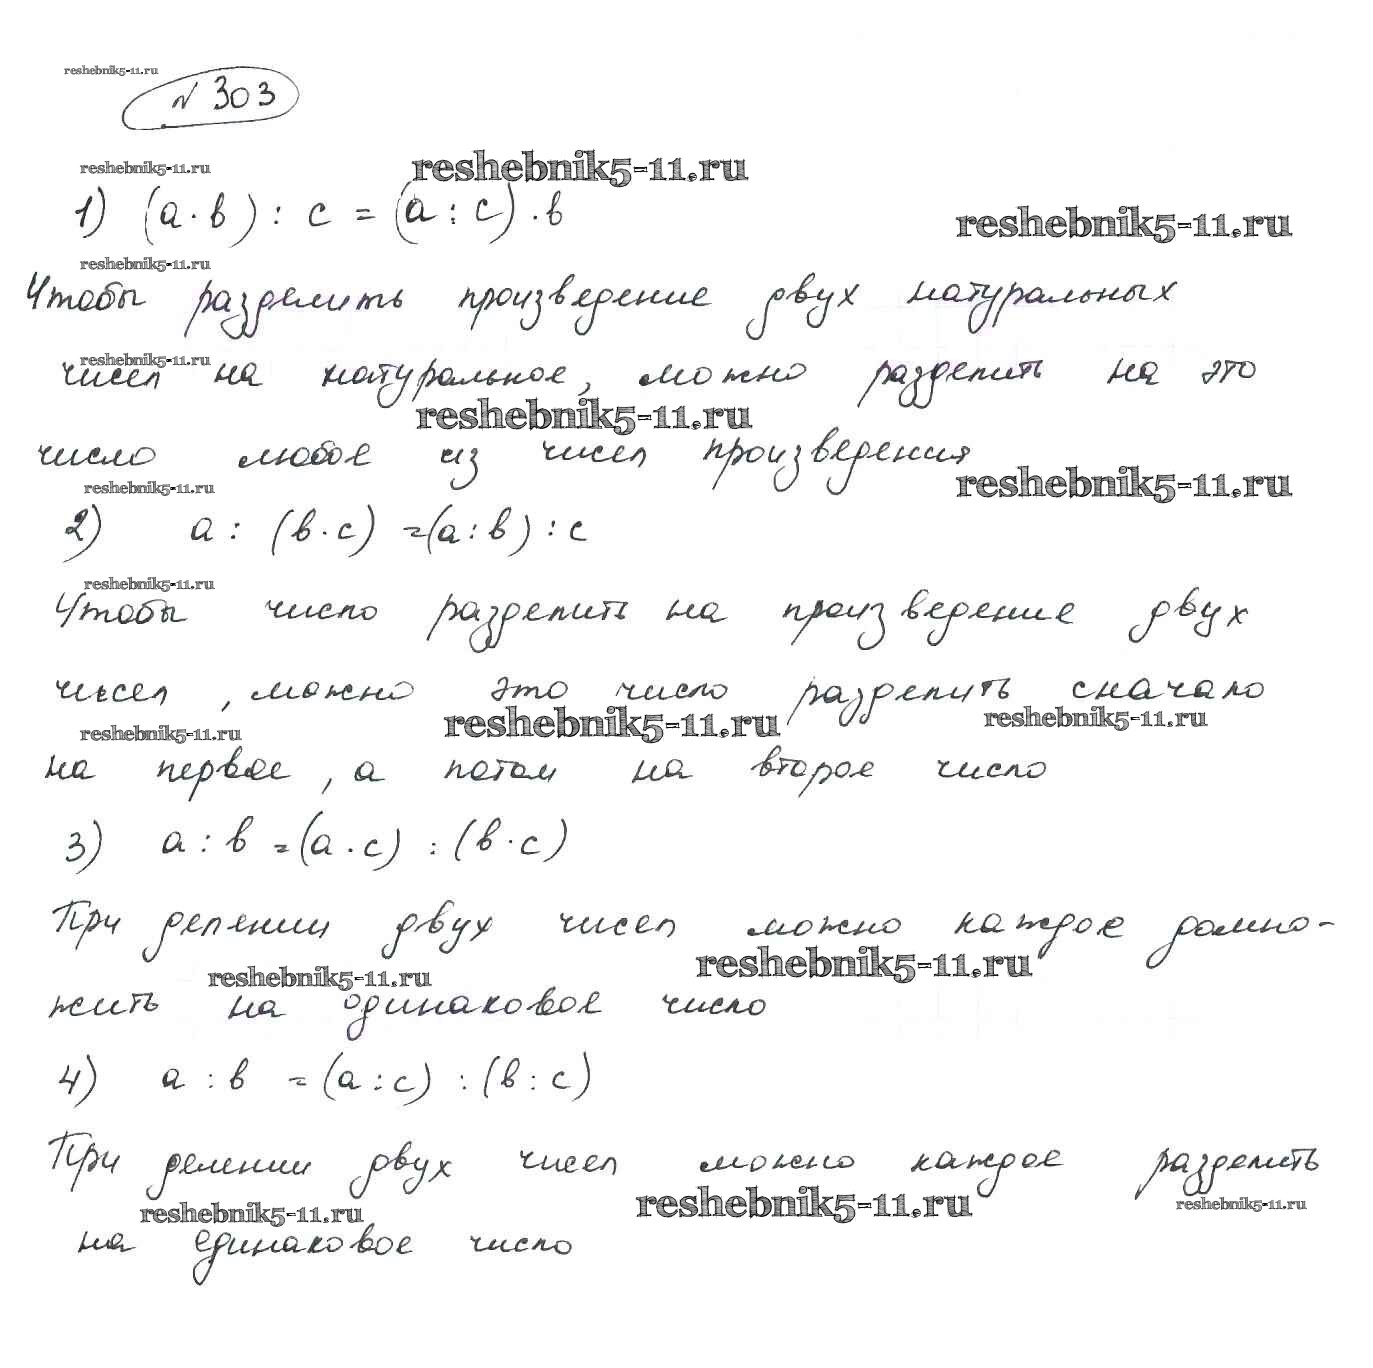 reshebnik5-11.ru
№ 303
reshebnik5-11.ru reshebnik5-11.ru
1) (a · b) : c = (a : c) · b
reshebnik5-11.ru
reshebnik5-11.ru
Чтобы разделить произведение двух натуральных
reshebnik5-11.ru
чисел на натуральное, можно разделить на это
reshebnik5-11.ru
число любое из чисел произведения
reshebnik5-11.ru
reshebnik5-11.ru
2) a : (b · c) = (a : b) : c
reshebnik5-11.ru
Чтобы число разделить на произведение двух
чисел, можно это число разделить сначало
reshebnik5-11.ru reshebnik5-11.ru reshebnik5-11.ru
на первое, а потом на второе число
3) a : b = (a · c) : (b · c)
При делении двух чисел можно каждое домно-
reshebnik5-11.ru reshebnik5-11.ru
жить на одинаковое число
4) a : b = (a : c) : (b : c)
При делении двух чисел можно каждое разделить
reshebnik5-11.ru reshebnik5-11.ru reshebnik5-11.ru
на единаковое число